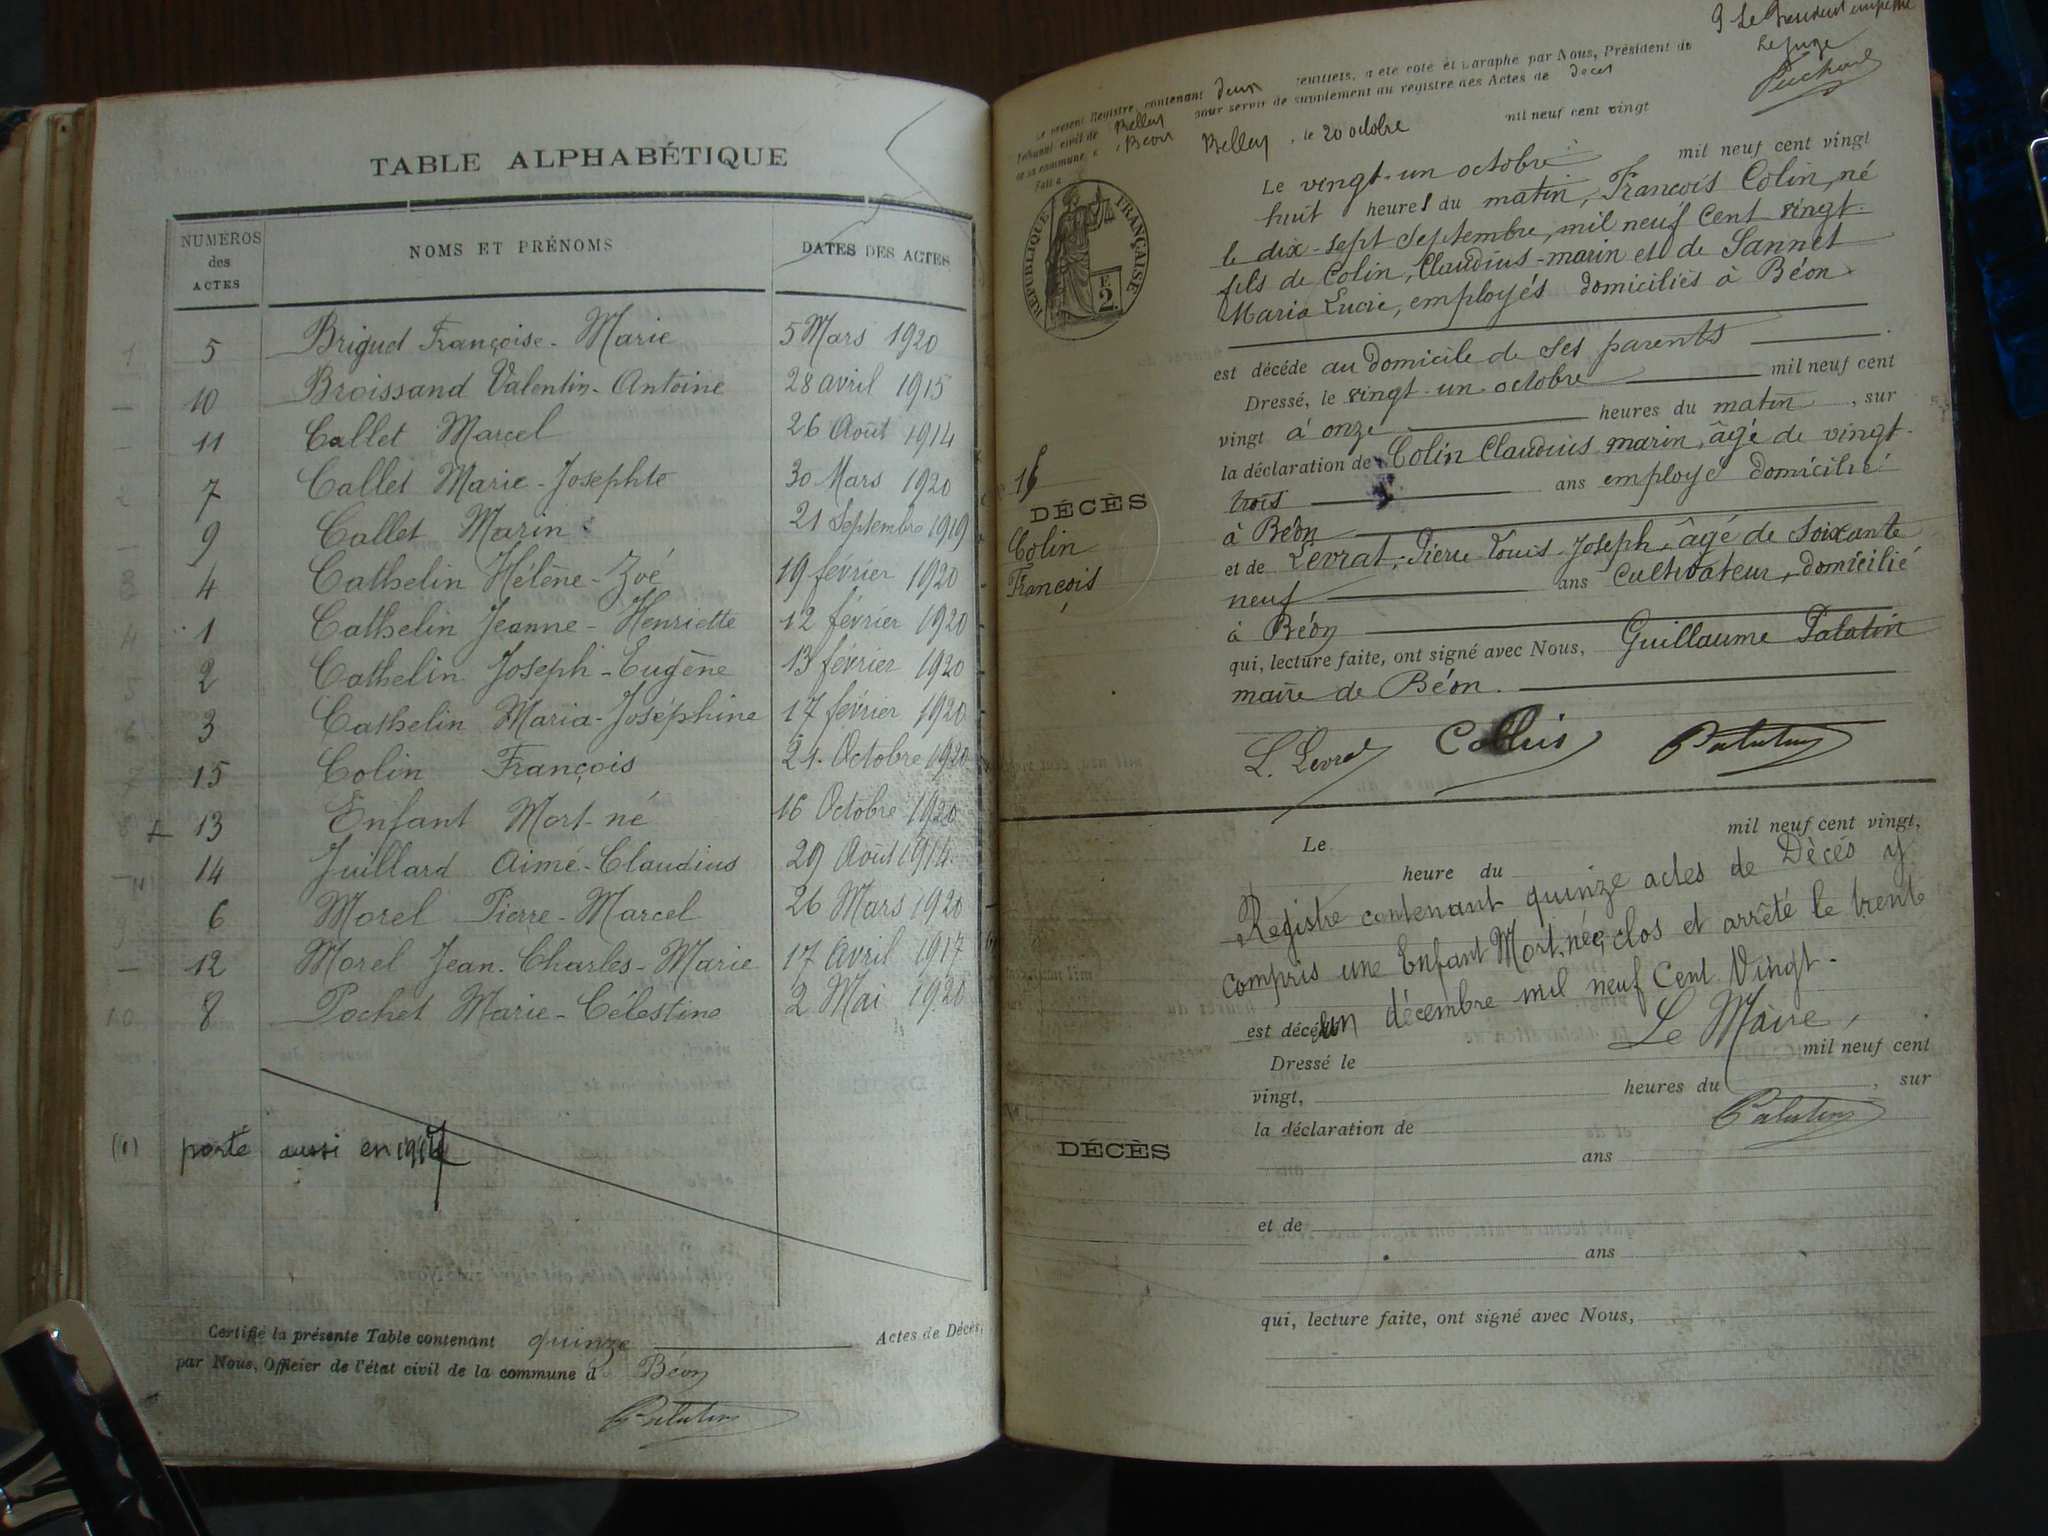 TABLE ALPHABÉTIQUE
NUMÉROS des ACTES NOMS ET PRÉNOMS DATES DES ACTES
5 Brigud Françoise-Marie 5 Mars 1920
10 Broissand Valentin-Antoine 28 avril 1915
11 Callet Marcel 26 Août 1914
7 Callet Marie-Josephte 30 Mars 1920
9 Callet Marin 21 Septembre 1919
4 Cathelin Hélène-Zoé 19 février 1920
1 Cathelin Jeanne-Henriette 12 février 1920
2 Cathelin Joseph-Eugène 13 février 1920
3 Cathelin Maria-Joséphine 17 février 1920
15 Colin François 21 Octobre 1920
13 Enfant Mort-né 16 Octobre 1920
14 Juillard Aimé-Claudius 29 Août 1914
6 Morel Pierre-Marcel 26 Mars 1920
12 Morel Jean-Charles-Marie 17 Avril 1917
8 Pochet Marie-Célestine 2 Mai 1920
(1) porté aussi en
Certifié la présente Table contenant quinze Actes de Décès,
par Nous, Officier de l'état civil de la commune d Béon
Palatin
Le Président empêché
Le Juge
Le présent Registre, contenant deux feuillets, a été coté et paraphé par Nous, Président du
Tribunal civil de Belley pour servir de supplément au registre des Actes de Décès
de la commune d Béon
Fait à Belley, le 20 octobre mil neuf cent vingt
RÉPUBLIQUE FRANÇAISE
2
Le vingt-un octobre mil neuf cent vingt
huit heures du matin, François Colin, né
le dix-sept Septembre, mil neuf cent vingt
fils de Colin, Claudius-marin et de Sannet
Maria Lucie, employés domiciliés à Béon
est décédé au domicile de ses parents
Dressé, le vingt-un octobre mil neuf cent
vingt à onze heures du matin, sur
la déclaration de Colin Claudius marin, âgé de vingt-
trois ans employé domicilié
à Béon
et de Levrat, Pierre Louis Joseph, âgé de Soixante
neuf ans Cultivateur, domicilié
à Béon
qui, lecture faite, ont signé avec Nous, Guillaume Palatin
maire de Béon.
15
DÉCÈS
Colin
François
L. Levrat Collin Palatin
Le mil neuf cent vingt,
heure du
Registre contenant quinze actes de Décès y
compris une Enfant Mort-née, clos et arrêté le trente
est décédé un décembre mil neuf Cent Vingt.
Le Maire,
Dressé le mil neuf cent
vingt, heures du , sur
Palatin
la déclaration de
DÉCÈS
ans
et de
ans
qui, lecture faite, ont signé avec Nous,